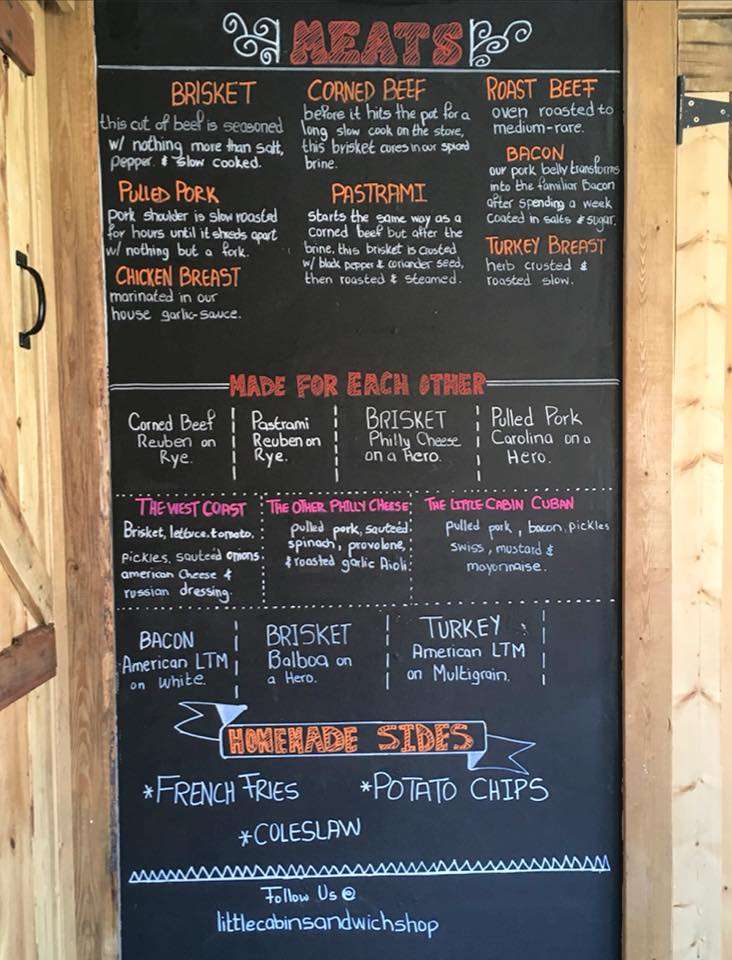 MEATS
BRISKET
this cut of beef is seasoned
w/ nothing more than salt,
pepper. & slow cooked.
CORNED BEEF
before it hits the pot for a
long slow cook on the stove,
this brisket cures in our spiced
brine.
ROAST BEEF
oven roasted to
medium-rare.
BACON
our pork belly transforms
into the familiar Bacon
after spending a week
coated in salts & sugar.
PULLED PORK
pork shoulder is slow roasted
for hours until it shreds apart
w/ nothing but a fork.
PASTRAMI
starts the same way as a
corned beef but after the
brine, this brisket is crusted
w/ black pepper & coriander seed,
then roasted & steamed.
TURKEY BREAST
herb crusted &
roasted slow.
CHICKEN BREAST
marinated in our
house garlic-sauce.
MADE FOR EACH OTHER
Corned Beef
Reuben on
Rye.
Pastrami
Reuben on
Rye.
BRISKET
Philly Cheese
on a Hero.
Pulled Pork
Carolina on a
Hero.
THE WEST COAST
Brisket, lettuce, tomato,
pickles, sauteed onions,
american Cheese &
russian dressing.
THE OTHER PHILLY CHEESE
pulled pork, sauteed
spinach, provolone,
& roasted garlic Aioli.
THE LITTLE CABIN CUBAN
pulled pork, bacon, pickles
swiss, mustard &
mayonnaise.
BACON
American LTM
on White.
BRISKET
Balboa on
a Hero.
TURKEY
American LTM
on Multigrain.
HOMEMADE SIDES
*FRENCH FRIES
*POTATO CHIPS
*COLESLAW
Follow Us @
littlecabinsandwichshop